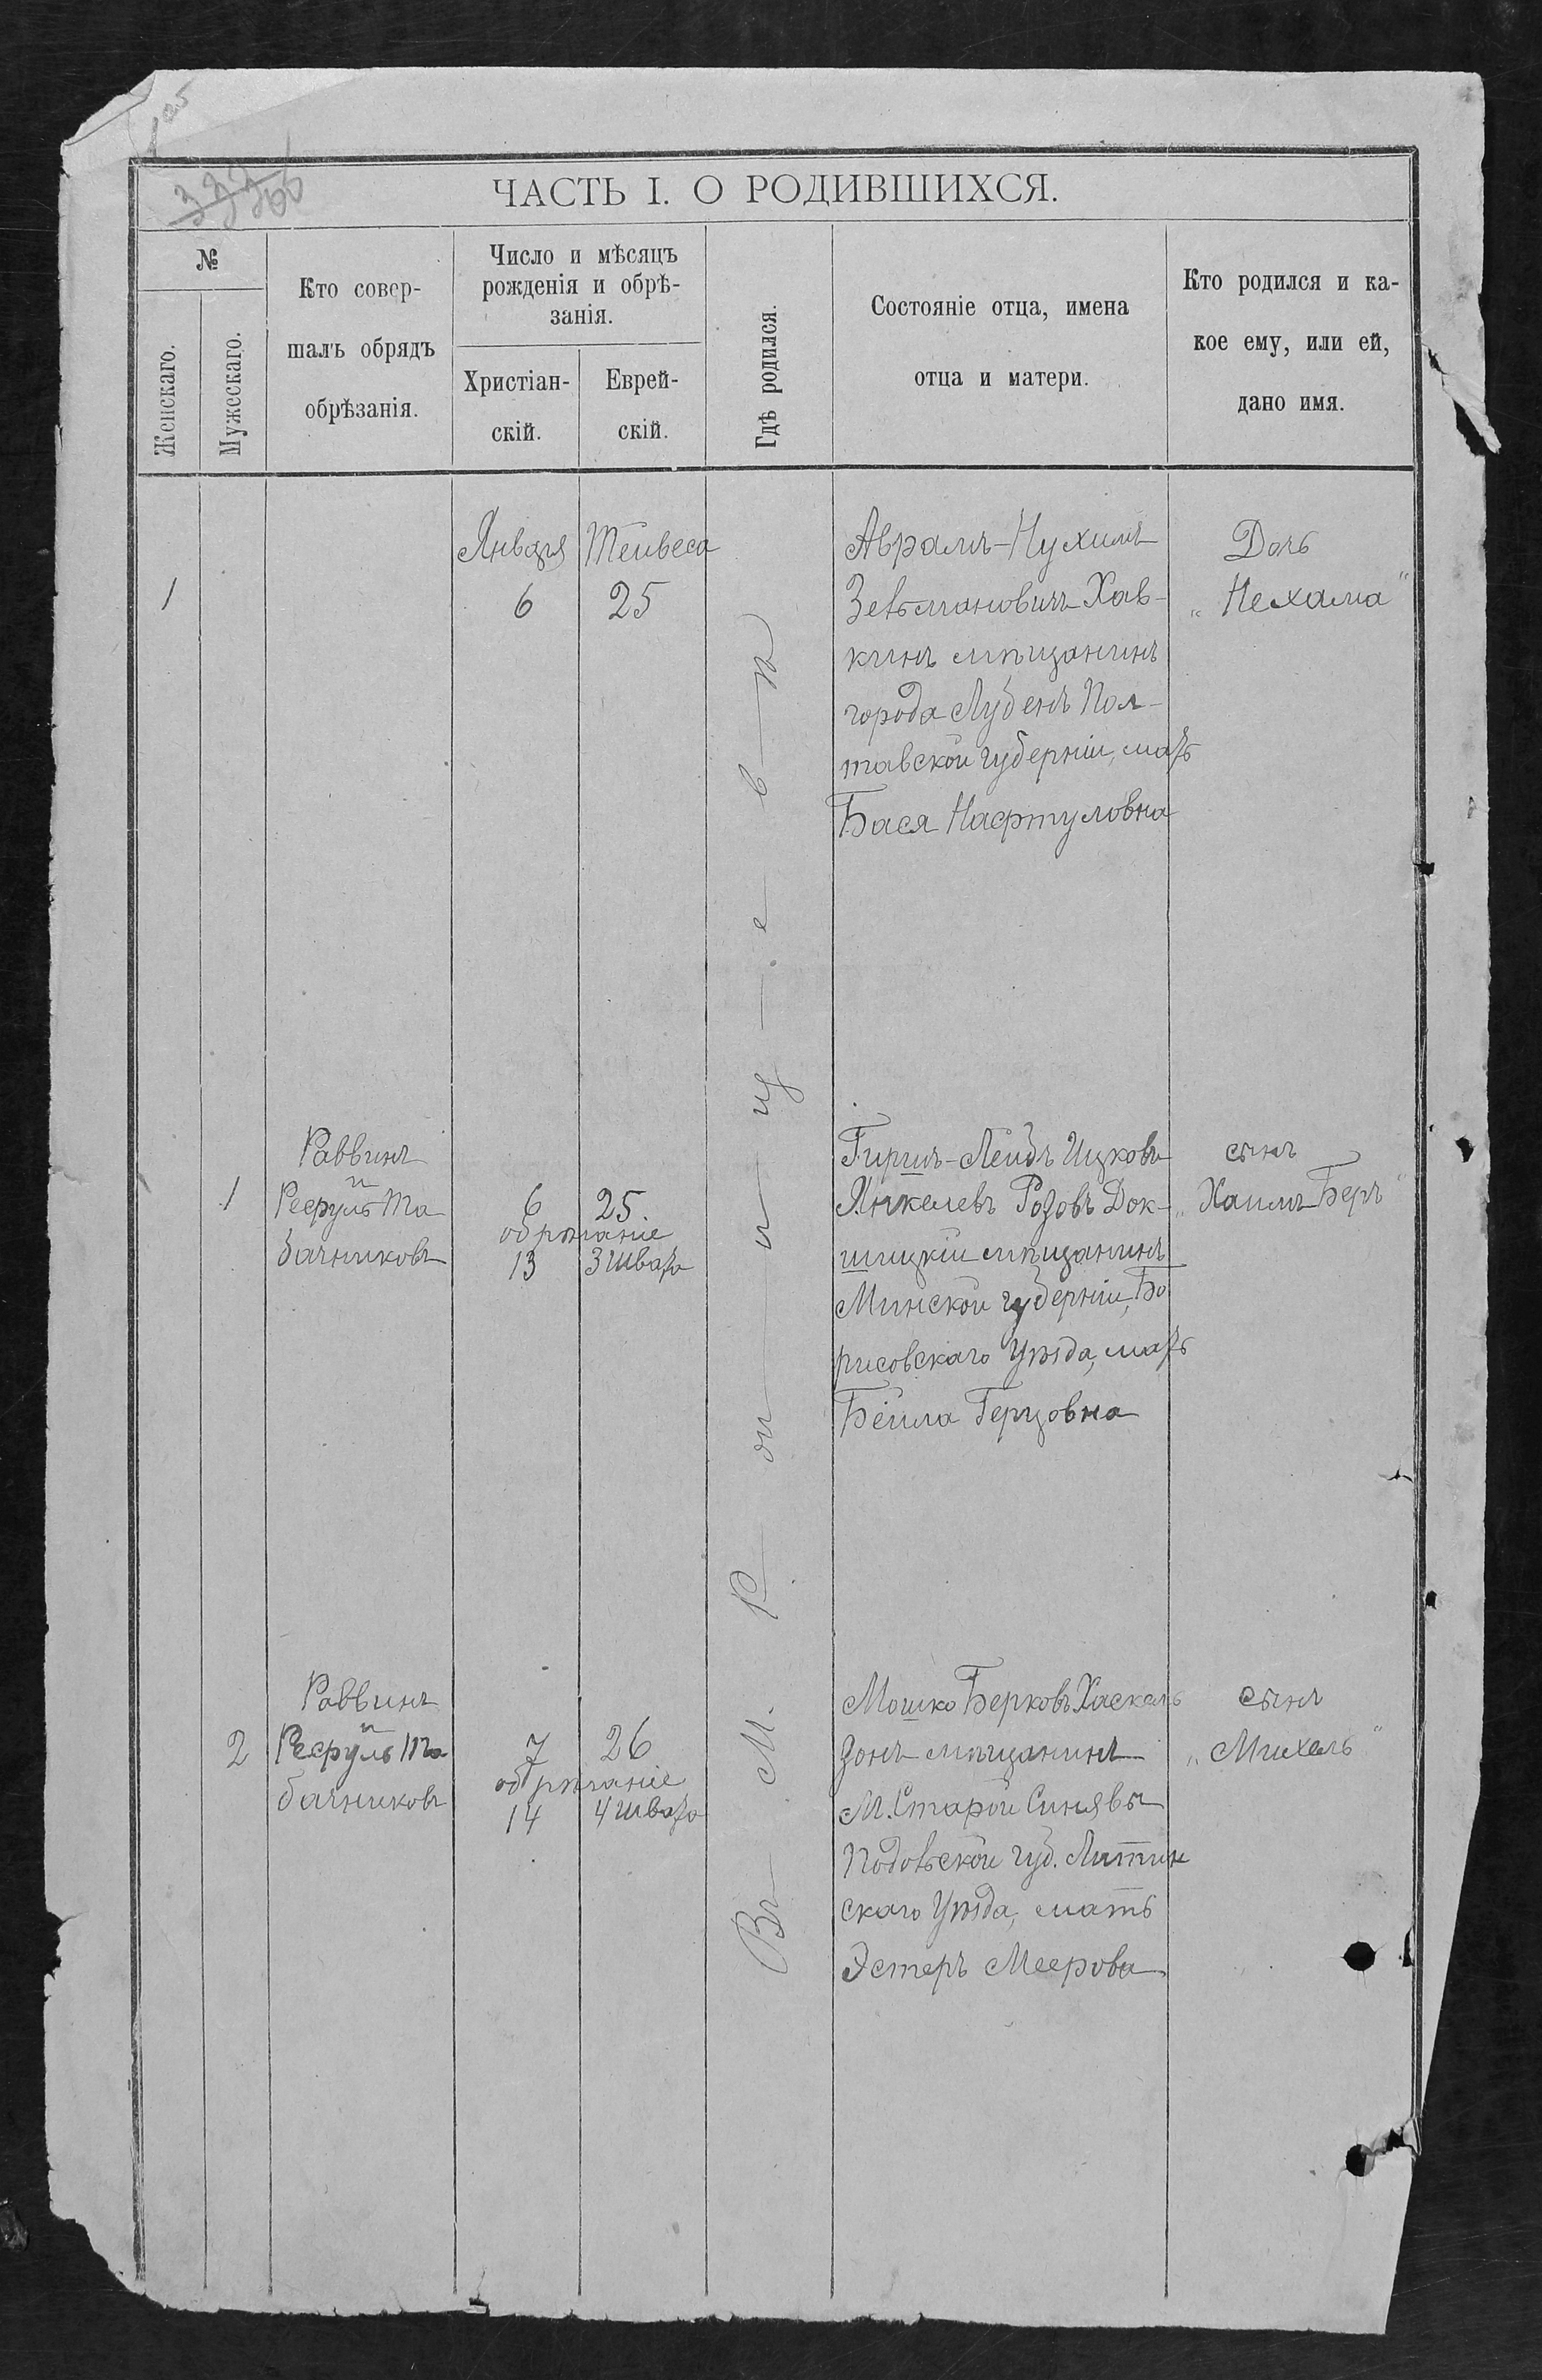 ЧАСТЬ I. О РОДИВШИХСЯ.
№
Женскаго.
Мужескаго.
Кто совер-
шалъ обрядъ
обрѣзанія.
Число и мѣсяцъ
рожденія и обрѣ-
занія.
Христіан-
скій.
Еврей-
скій.
Гдѣ родился.
Состояніе отца, имена
отца и матери.
Кто родился и ка-
кое ему, или ей,
дано имя.
Въ М. Ройницевѣ
1
Января
6
Тейвеса
25
Аврамъ-Нухимъ
Зельмановичъ Хав-
кинъ мѣщанинъ
города Лубенъ Пол-
тавской губерніи, мать
Бася Нафтуловна
Дочь
„Нехама"
1
Раввинъ
и
Рефуль Та
бачниковъ
6 25.
обрѣзаніе
13 3 Швата
Гиршъ-Лейбъ Ицковъ
Янкелевъ Розовъ Док-
шицкій мѣщанинъ
Минской губерніи, Бо
рисовскаго Уѣзда, мать
Бейла Герцовна
сынъ
„Хаимъ Беръ"
2
Раввинъ
и
Рефуль Та
бачниковъ
7 26
обрѣзаніе
14 4 Швата
Мошко Берковъ Хаскель
зонъ мѣщанинъ
М. Старой Синявы
Подольской губ. Литин
скаго Уѣзда, мать
Эстеръ Меерова
Сынъ
„Михель"